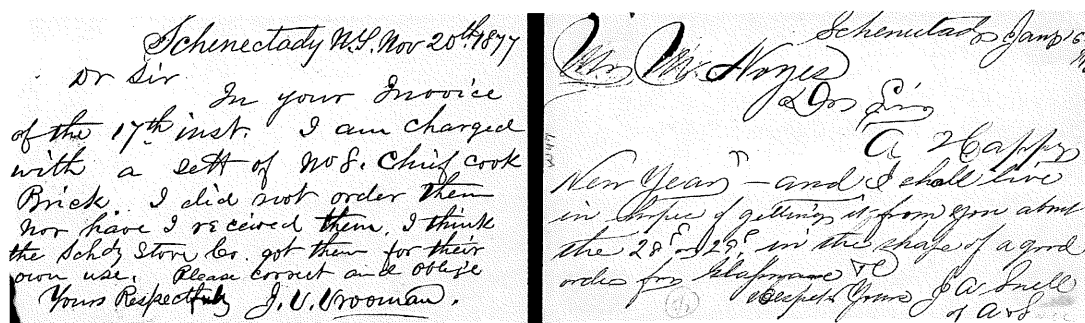 Schenectady N.Y. Nov 20th 1877
Dr Sir
In your Invoice
of the 17th inst. I am charged
with a sett of No 8. Chief cook
Brick. I did not order them
nor have I received them. I think
the Schdy Stove Co. got them for their
own use. Please correct and oblige
Yours Respectfully J. V. Vrooman.
Schenectady Jany
Mr Noyes
Dr Sir
A Happy
New Year - and I shall live
in hopes of getting it from you about
the 28th or 29th in the shape of a good
order for Glassware &c
Respect Yours J A Snell
of A &